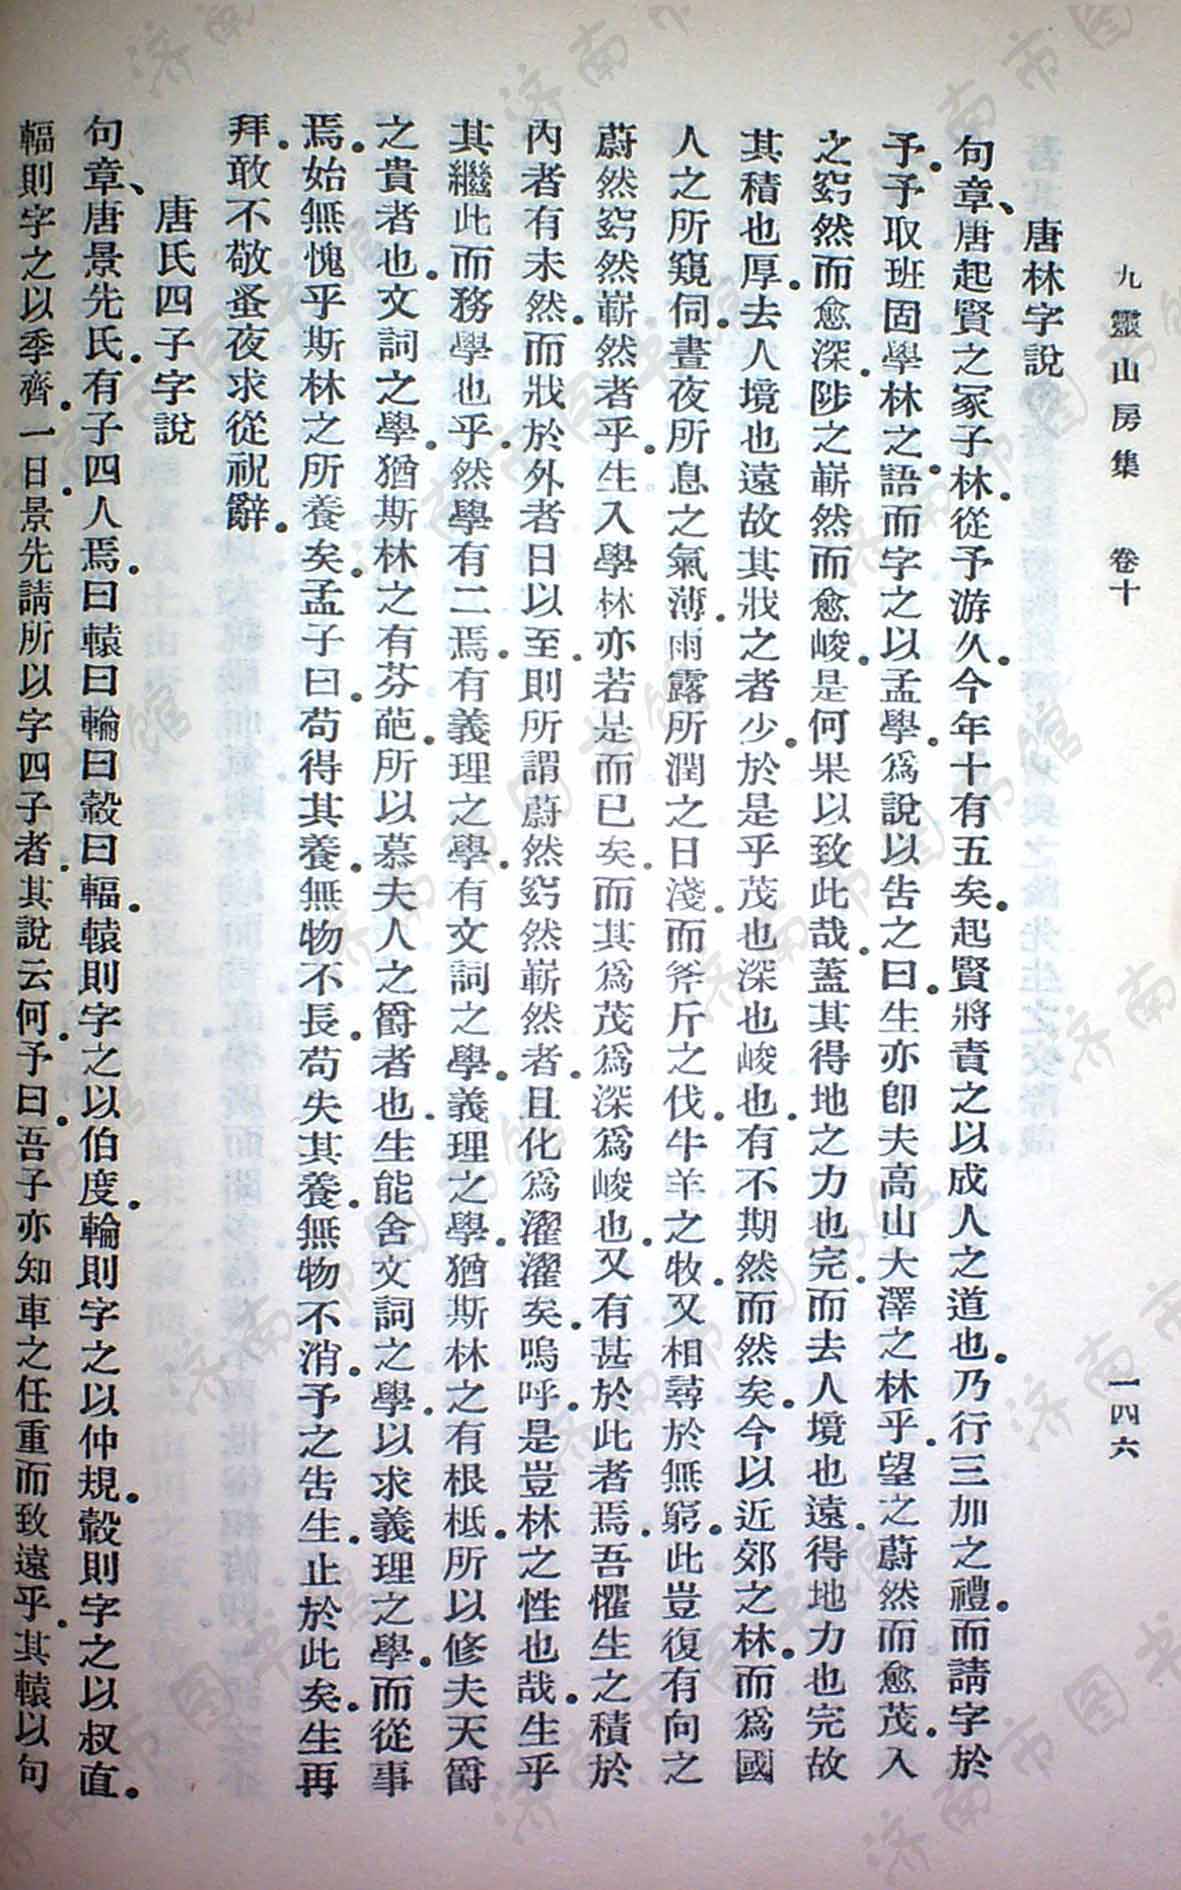 九靈山房集　卷十　一四六
唐林字說
句章、唐起賢之冢子林。從予游久。今年十有五矣。起賢將責之以成人之道也。乃行三加之禮。而請字於
予。予取班固學林之語。而字之以孟學。爲說以告之曰。生亦卽夫高山大澤之林乎。望之蔚然而愈茂。入
之窈然而愈深。陟之嶄然而愈峻。是何果以致此哉。蓋其得地之力也完。而去人境也遠。得地力也完。故
其積也厚。去人境也遠。故其戕之者少。於是乎茂也深也峻也。有不期然而然矣。今以近郊之林。而爲國
人之所窺伺。晝夜所息之氣薄。雨露所潤之日淺。而斧斤之伐。牛羊之牧。又相尋於無窮。此豈復有向之
蔚然窈然嶄然者乎。生入學林。亦若是而已矣。而其爲茂爲深爲峻也。又有甚於此者焉。吾懼生之積於
內者有未然。而戕於外者日以至。則所謂蔚然窈然嶄然者。且化爲濯濯矣。嗚呼。是豈林之性也哉。生乎
其繼此而務學也乎。然學有二焉。有義理之學。有文詞之學。義理之學。猶斯林之有根柢。所以修夫天爵
之貴者也。文詞之學。猶斯林之有芬葩。所以慕夫人之爵者也。生能舍文詞之學。以求義理之學。而從事
焉。始無愧乎斯林之所養矣。孟子曰。苟得其養。無物不長。苟失其養。無物不消。予之告生。止於此矣。生再
拜。敢不敬蚤夜求從祝辭。
唐氏四子字說
句章、唐景先氏。有子四人焉。曰轅曰輪曰轂曰輻。轅則字之以伯度。輪則字之以仲規。轂則字之以叔直。
輻則字之以季齊。一日。景先請所以字四子者。其說云何。予曰。吾子亦知車之任重而致遠乎。其轅以句